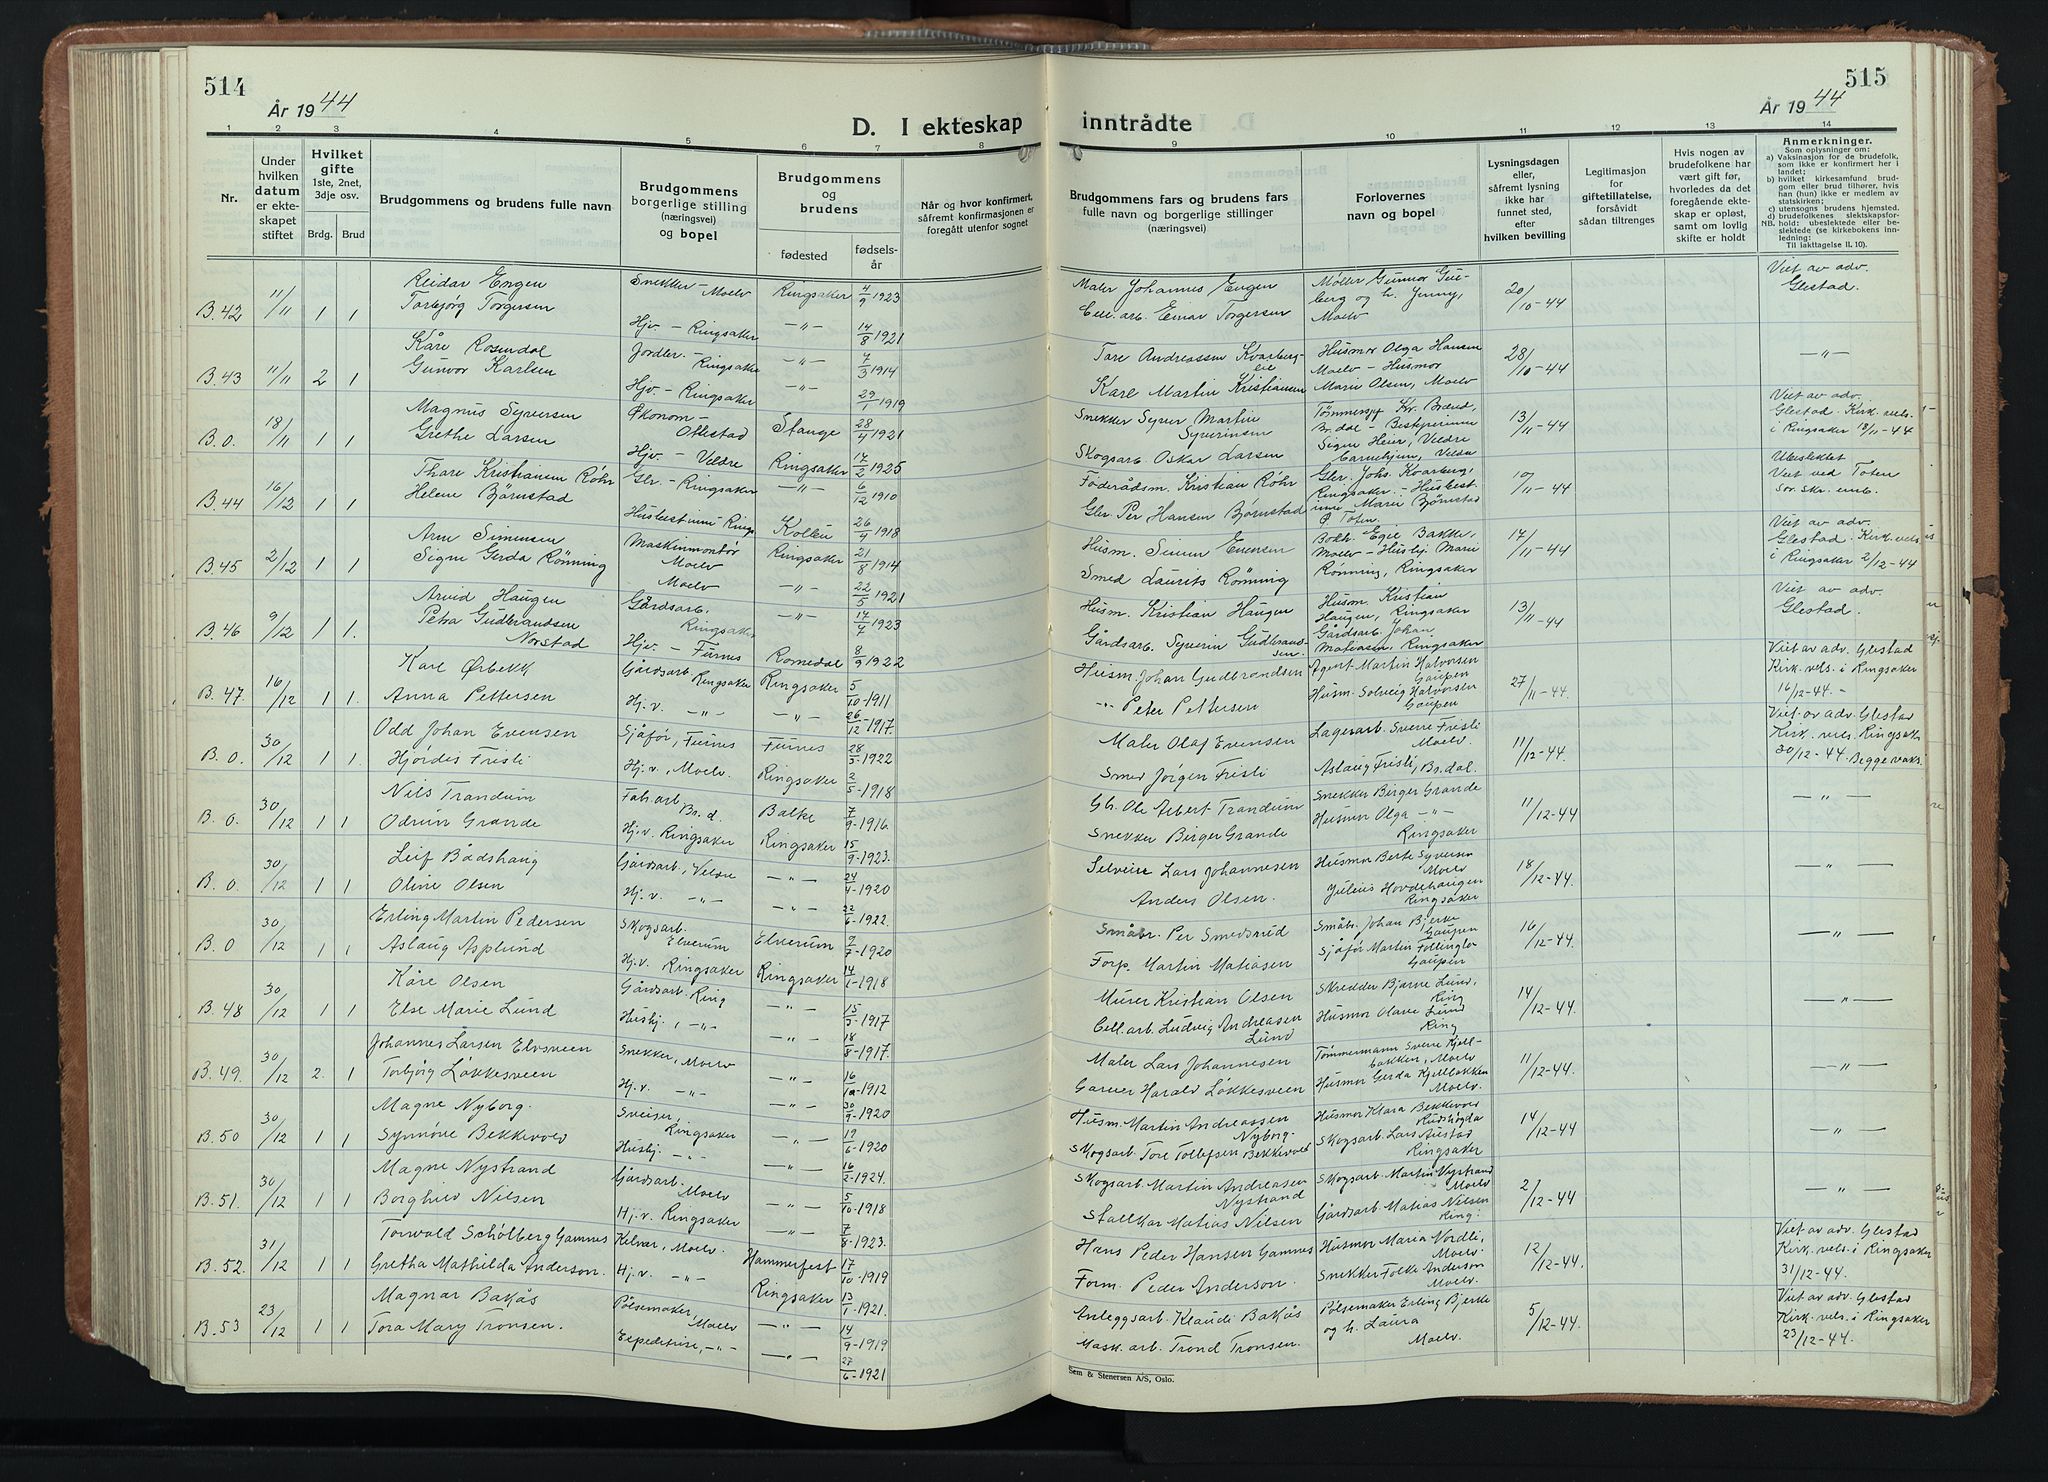 514
År 1944
D. I ekteskap
1 2 3 4 5 6 7 8
Nr.
Under hvilken datum er ekteskapet stiftet
Hvilket gifte 1ste, 2net, 3dje osv.
Brdg. Brud
Brudgommens og brudens fulle navn
Brudgommens borgerlige stilling (næringsvei) og bopel
Brudgommens og brudens
fødested
fødselsår
Når og hvor konfirmert, såfremt konfirmasjonen er foregått utenfor sognet
B.42 11/11 1 1 Reidar Engen Snekker - Moelv Ringsaker 4/9 1923
Torbjørg Torgersen Hjv - Ringsaker -"- 14/8 1921
B.43 11/11 2 1 Kåre Rosendal Jordbr. - Ringsaker -"- 7/3 1914
Gunvor Karlsen Hjv. - Ringsaker -"- 29/1 1919
B.0. 18/11 1 1 Magnus Syversen Økonom - Ottestad Stange 28/4 1921
Grethe Larsen Hjv. - Veldre Ringsaker 17/2 1925
B.44 16/12 1 1 Thore Kristiansen Røhr Gbr. - Ringsaker -"- 6/12 1910
Helene Bjørnstad Kolbu 26/4 1918
B.45 2/12 1 1 Arne Simensen Maskinmontør Moelv Ringsaker 21/8 1914
Signe Gerda Rønning Moelv -"- 22/5 1921
B.46 9/12 1 1. Arvid Haugen Gårdsarb. Ringsaker -"- 17/7 1923
Petra Gudbrandsen Norstad Hjv. - Furnes Romedal 8/9 1922
B.47 16/12 1 1. Karl Ørbekk Gårdsarb. Ringsaker Ringsaker 5/10-1911
Anna Pettersen Hj.v. -"- -"- 26/12-1917.
B.0. 30/12 1 1. Odd Johan Evensen Sjåfør, Furnes Furnes 28/3-1922
Hjördis Frisli Hj.v., Moelv. Ringsaker 2/5-1918
B.0. 30/12 1 1 Nils Trandum Fabr.arb. Br.d. Balke 7/9-1916.
Odrun Grande Hj.v. Ringsaker Ringsaker 15/9-1923.
B.0. 30/12 1 1 Leif Bådshaug Gårdsarb., Veldre -"- 24/4-1920
Oline Olsen Hj.v. -"- -"- 22/6-1922.
B.0 30/12 1 1 Erling Martin Pedersen Skogsarb. Elverum Elverum 2/7-1920
Aslaug Asplund Hj.v. Ringsaker Ringsaker 14/1-1918
B.48 30/12 1 1 Kåre Olsen Gårdsarb. Ring -"- 15/3-1917
Else Marie Lund Husbj., -"- -"- 18/8-1917.
B.49. 30/12 2. 1 Johannes Larsen Elvsveen Snekker, Moelv -"- 16/10-1912
Torbjörg Lökkesveen Hj.v. -"- -"- 30/9-1920
B.50 30/12 1 1 Magne Nyborg. Sveiser, Ringsaker -"- 19/6-1920
Synnöve Bekkevold Husbj. -"- -"- 16/2-1924.
B.51. 30/12 1 1 Magne Nystrand Gårdsarb. Moelv -"- 5/10-1918
Borghild Nilsen Hj.v. Ringsaker -"- 7/8-1923.
B.52. 31/12 1 1 Torvald Schölberg Gamnes Kelner, Moelv. Hammerfest 17/10-1919
Gretha Mathilda Anderson. Hj.v. -"- Ringsaker 13/1-1921.
B.53 23/12 1 1 Magnar Bakås Pölsemaker, Moelv -"- 14/9-1919
Tora Mary Tronsen. Expeditrise, -"- -"- 27/6-1921
515
År 1944
inntrådte
9 10 11 12 13 14
Brudgommens fars og brudens fars fulle navn og borgerlige stillinger (næringsvei)
Forlovernes navn og bopel
Lysningsdagen eller, såfremt lysning ikke har funnet sted, efter hvilken bevilling
Legitimasjon for giftetillatelse, forsåvidt sådan tiltrenges
Hvis nogen av brudefolkene har vært gift før, hvorledes da det foregående ekteskap er opløst, samt om lovlig skifte er holdt
Anmerkninger.
Som oplysninger om:
a) Vaksinasjon for de brudefolk, som ikke er konfirmert her i landet;
b) hvilket kirkesamfund brudgom eller brud tilhører, hvis han (hun) ikke er medlem av statskirken;
c) utensogns brudens hjemsted.
d) brudefolkenes slektskapsforhold: ubeslektede eller beslektede (se kirkebokens innledning:
NB. Til iakttagelse II. 10).
Maler Johannes Engen Møller Gunnar Gulberg og h. Jenny, Moelv 20/10-44 Viet av adv. Glestad.
Cell. arb. Einar Torgersen
Tore Andreassen Kvarberglie Husmor Olga Hansen Moelv - Husmor 28/10-44 -"-
Karl Martin Kristiansen Marie Olsen, Moelv
Snekker Syver Martin Syverinsen Br.dal - Bestyrerinne 13/11-44 Viet av adv. Glestad. Kirk. vels. i Ringsaker 18/11-44
Skogsarb. Oskar Larsen Signe Heier, Veldre
Føderådsm. Kristian Røhr Gbr. Johs. Kvarberg, Ringsaker - Husbestinne Marie Bjørnstad Ø Toten. 10/11-44 Ubeslektet Viet ved Toten Sor.skr. emb.
Gbr. Per Hansen Bjørnstad
Husm. Simen Evensen Moelv - Husbj. Marie Rønning, Ringsaker 17/11-44 Viet av adv. Glestad. Kirk. vels. i Ringsaker 2/12-44
Smed Laurits Rønning
Husm. Kristian Haugen Husm. Kristian Haugen, Ringsaker 13/11-44 Viet av adv. Glestad.
Gårdsarb. Syverin Gudbrandsen Gårdsarb. Johan Mathiasen, Ringsaker
Husm. Johan Gudbrandsen Agent Martin Halvorsen Gaupen 27/11-44. Viet av adv. Glestad Kirk. vels. i Ringsaker 16/12-44. -
-"- Peter Pettersen Husm. Solveig Halvorsen Gaupen
Maler Olaf Evensen Lagerarb. Sverre Frisli Moelv. 11/12-44 Viet av adv. Glestad Kirk. vels. Ringsaker 30/12-44. Begge vaks.
Smed Jörgen Frisli Aslaug Frisli, Br.dal.
Gb. Ole Albert Trandum Snekker Birger Grande 11/12-44 -"-
Snekker Birger Grande Husmor Olga -"- Ringsaker
Selveier Lars Johannesen Husmor Berte Syversen Moelv 18/12-44. -"-
Anders Olsen. Julius Hovdehaugen Ringsaker
Småbr. Per Smedsrud Småbr. Johan Bjerke Gaupen 16/12-44. -"-
Forp. Martin Matiasen Sjåför Martin Gaupen
Murer Kristian Olsen Skredder Bjarne Lund, Ring 14/12-44 -"-
Cell.arb. Ludvig Andreasen Lund Husmor Olave Lund Ring
Maler Lars Johannesen Tömmermann Sverre Kjelbakken, Moelv 11/12-44. -"-
Garver Harald Lökkesveen Husmor Gerda Kjelbakken Moelv.
Husm. Martin Andreassen Nyborg. Husmor Klara Bekkevold Rudshögda 14/12-44 -"-
Skogsarb. Tore Tollefsen Bekkevold Skogsarb. Lars Austad Ringsaker
Skogsarb. Martin Andreasen Nystrand Skogsarb. Martin Nystrand Moelv 2/12-44 -"-
Stallkar Matias Nilsen Gårdsarb. Matias Nilsen Ring.
Hans Peder Hansen Gamnes Husmor Maria Nordli, Moelv. 12/12-44. Viet av adv. Glestad Kirk. vels. i Ringsaker 31/12-44.
Form. Peder Anderson. Snekker Folke Anderson Moelv.
Anleggsarb. Klaudi Bakås Pölsemaker Erling Bjerke og h. Laura Moelv. 5/12-44. Viet av adv. Glestad Kirk. vels. i Ringsaker 23/12-44.
Mask. arb. Trond Tronsen.
Sem & Stenersen A/S, Oslo.